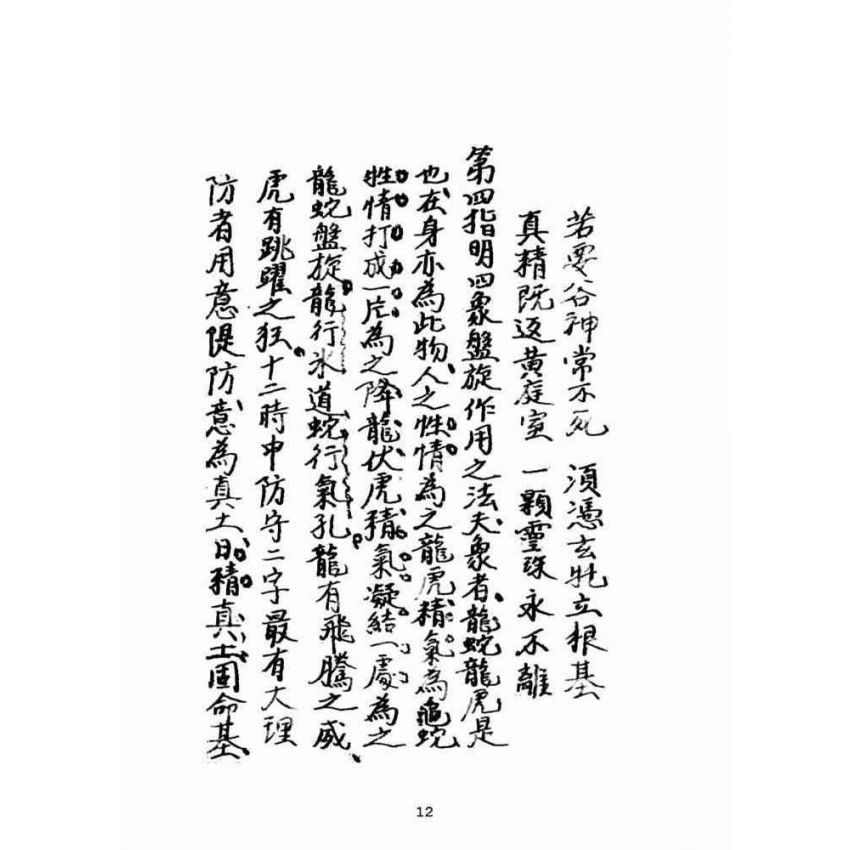 若要谷神常不死　須憑玄牝立根基
真精既返黃庭室　一顆靈珠永不離
第四指明四象盤旋作用之法、夫象者、龍蛇龍虎是
也、在身亦為此物、人之性情為之龍虎、精氣為龜蛇、
性情打成一片、為之降龍伏虎、精氣凝結一處、為之
龍蛇盤旋、龍行水道、蛇行氣孔、龍有飛騰之威、
虎有跳躍之狂、十二時中防守二字最有大理
防者用意隄防、意為真土、日精、真土固命基、
12